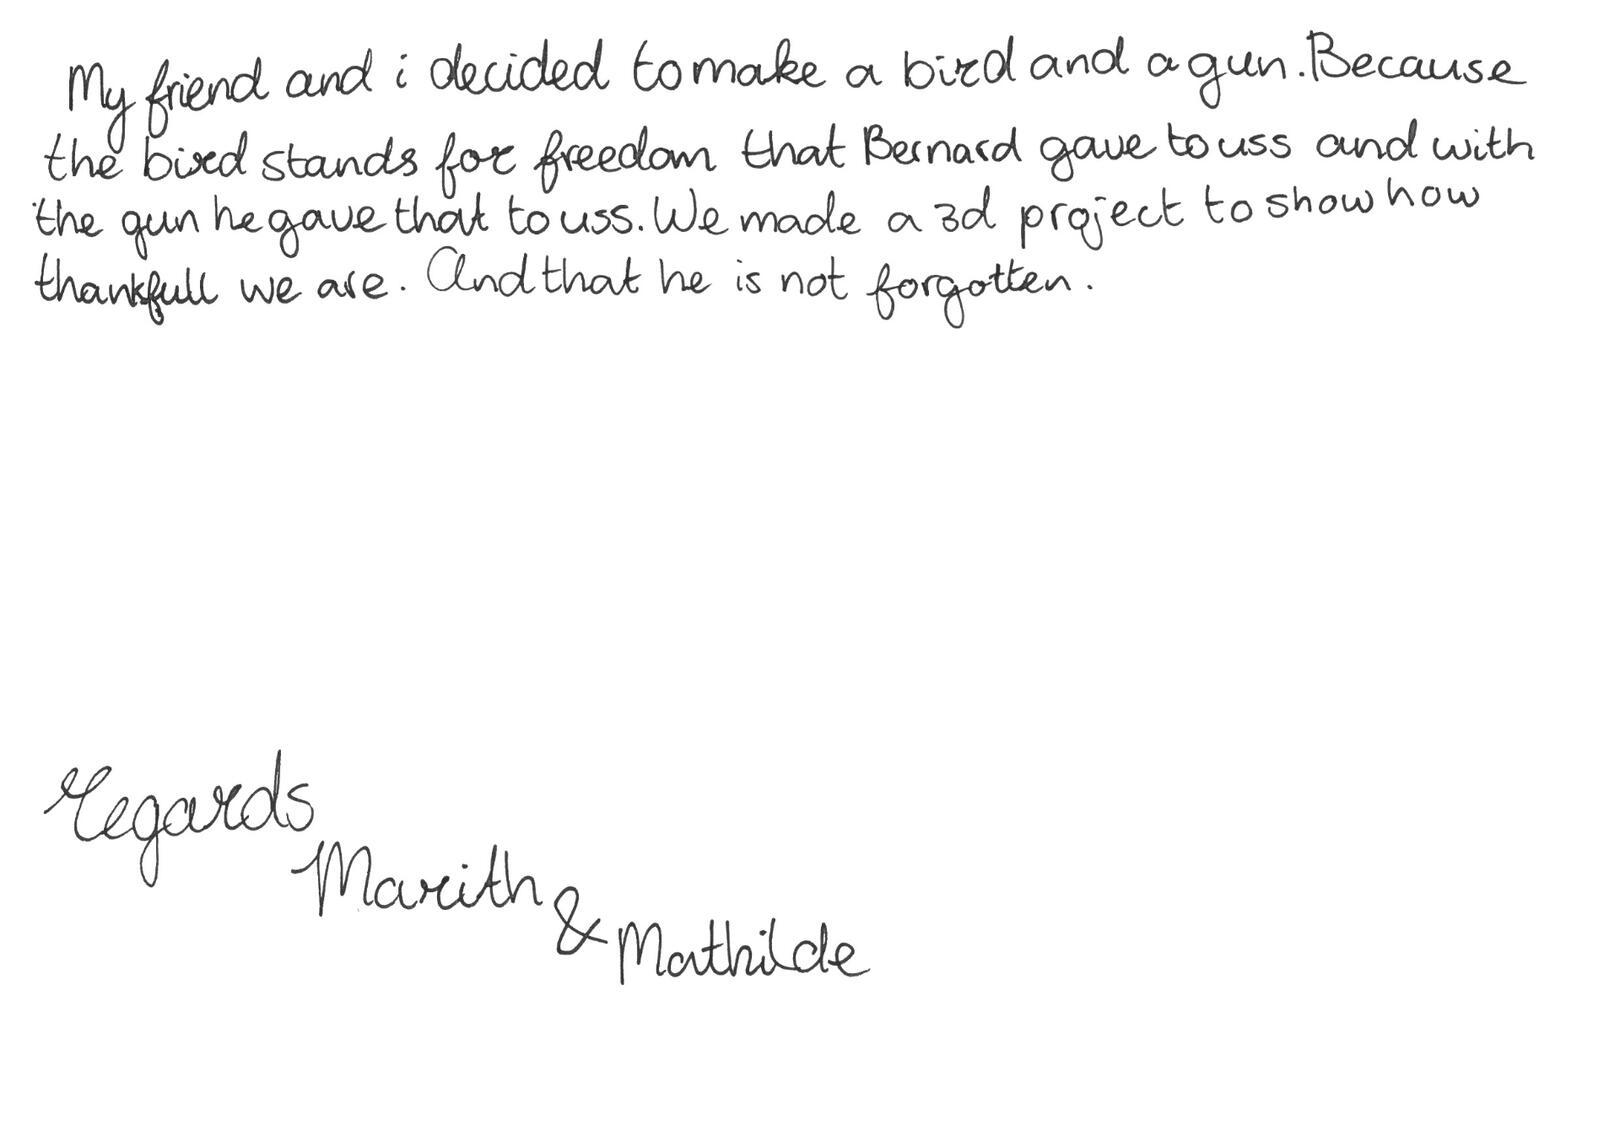 My friend and i decided to make a bird and a gun. Because
the bird stands for freedom that Bernard gave to uss and with
the gun he gave that to uss. We made a 3d project to show how
thankfull we are. And that he is not forgotten.
regards
Marith
&
Mathilde